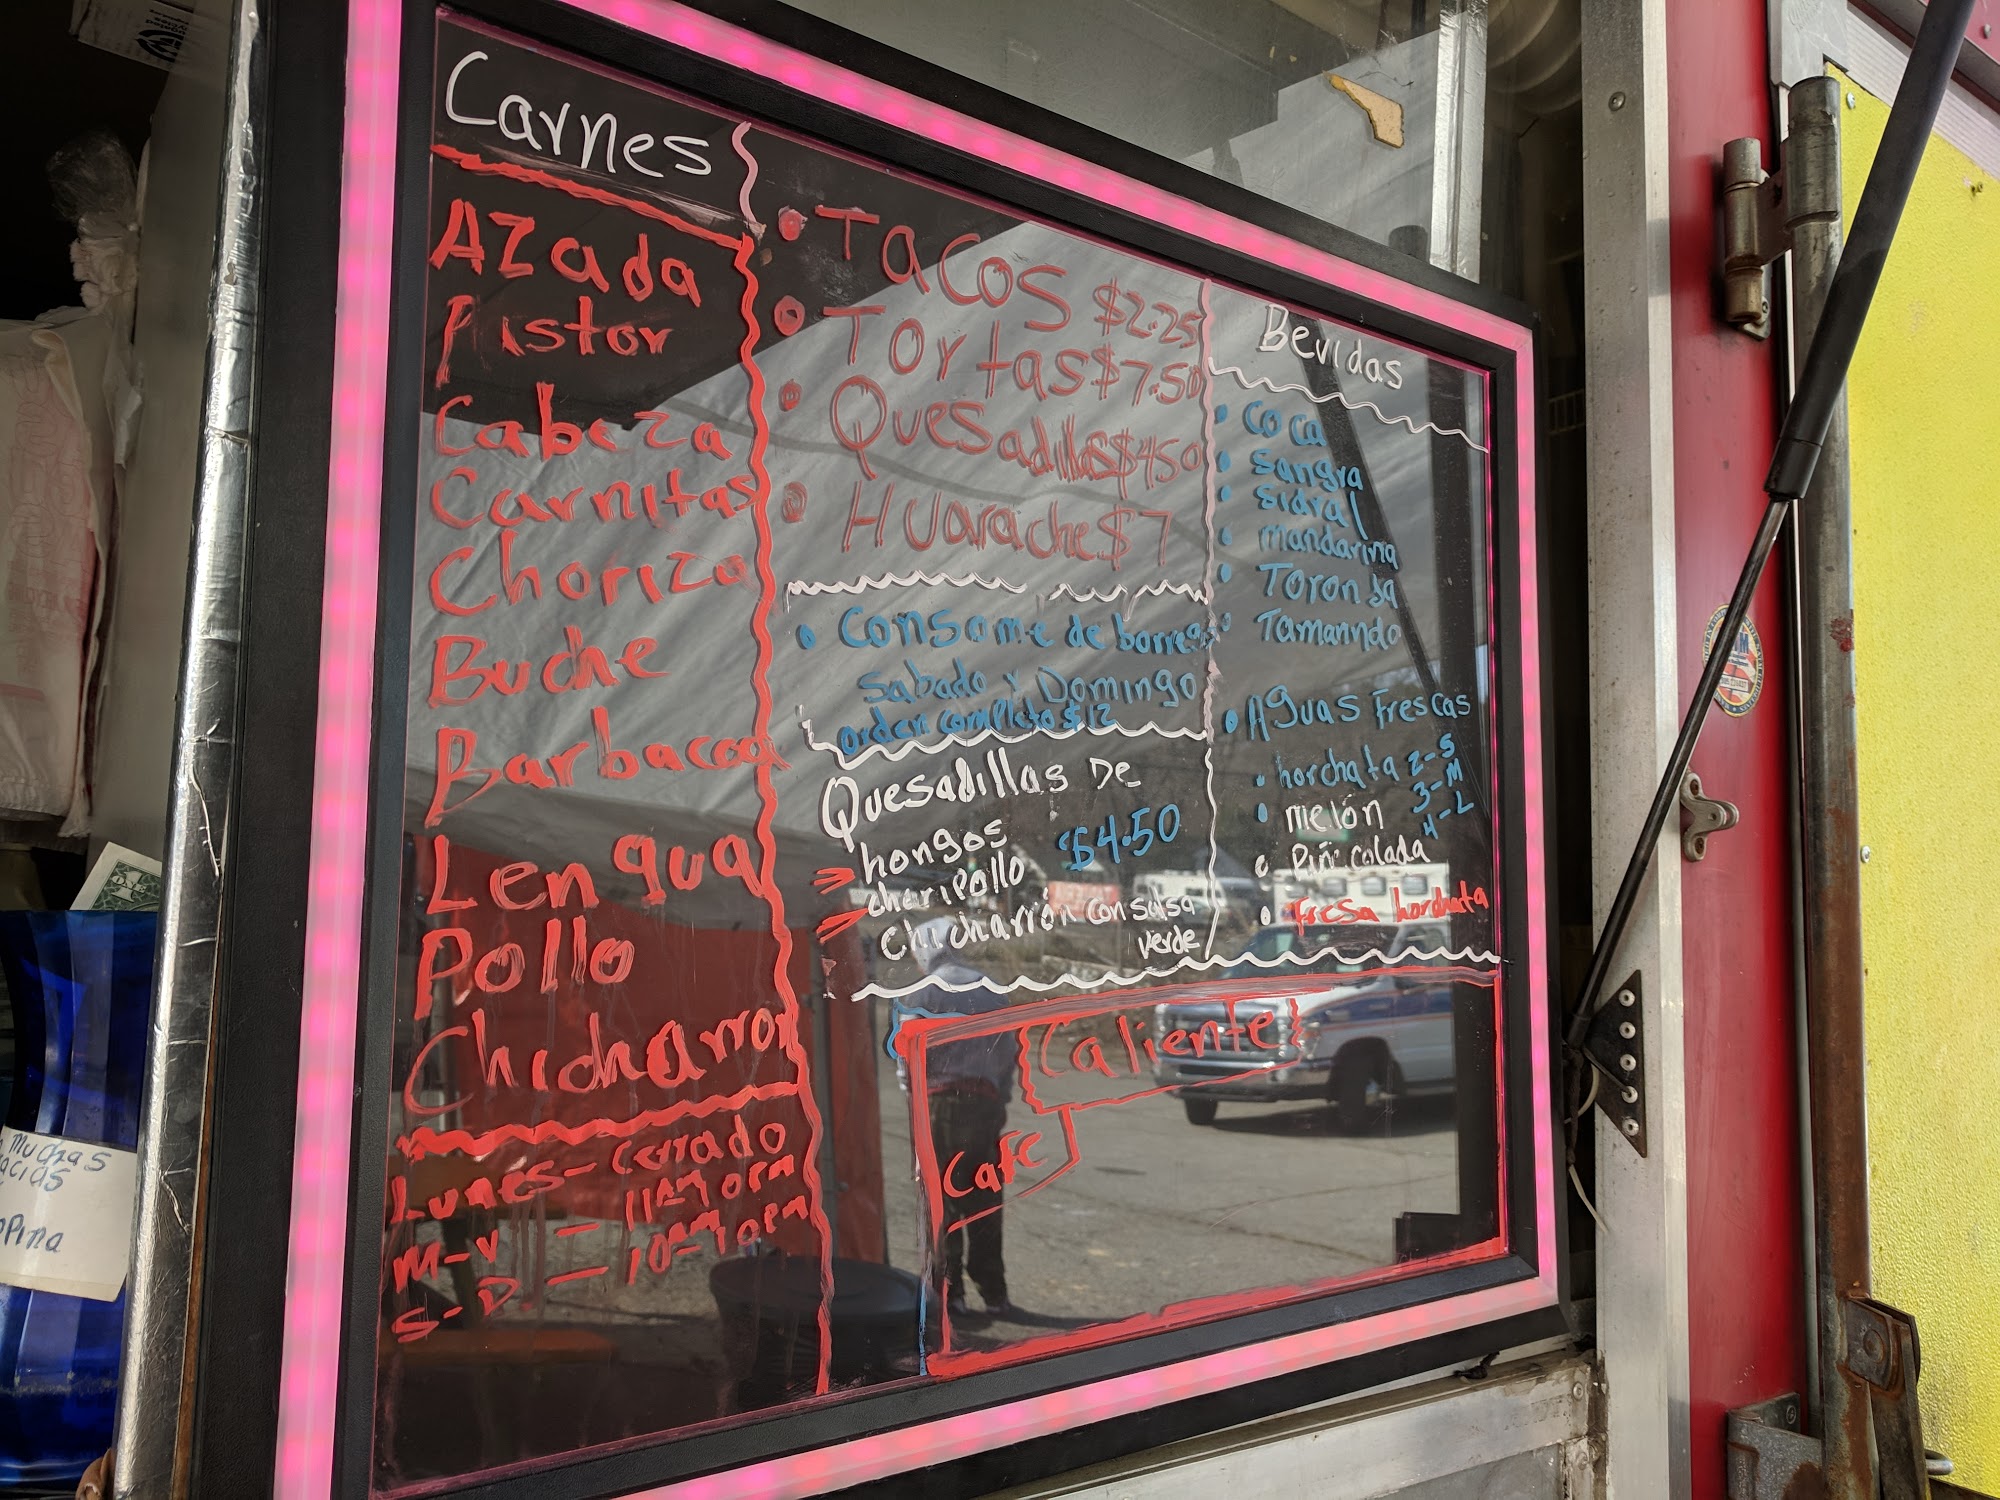 Carnes
Azada
Pastor
Cabeza
Carnitas
Chorizo
Buche
Barbacoa
Lengua
Pollo
Chicharron
Lunes - cerrado
M-V - 11AM 9PM
S-D - 10AM 9PM
Tacos $2.25
Tortas $7.50
Quesadillas $4.50
Huarache $7
Consome de borrego
Sabado y Domingo
orden completo $12
Quesadillas De
hongos
choripollo $4.50
chicharrón con salsa
verde
Bevidas
Coca
Sangra
Sidral
mandarina
Toronja
Tamarindo
Aguas Frescas
horchata 2-S
melón 3-M
Piñe colada 4-L
Fresa horchata
Caliente
Cafe
muchas